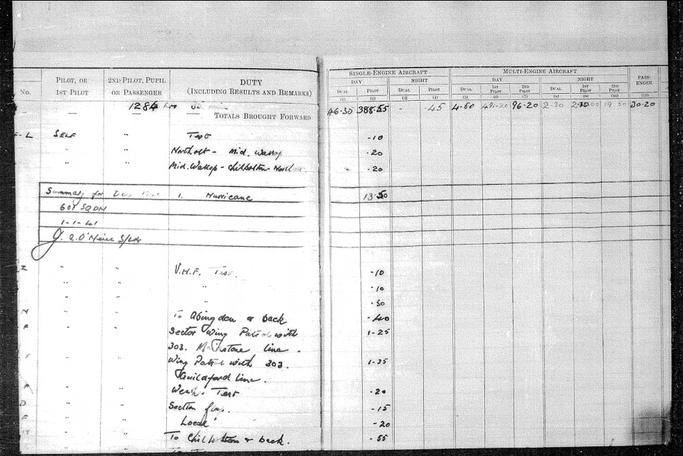 SINGLE-ENGINE AIRCRAFT MULTI-ENGINE AIRCRAFT
PILOT, OR 2ND PILOT, PUPIL DUTY DAY NIGHT DAY NIGHT PASS-
No. 1ST PILOT OR PASSENGER (INCLUDING RESULTS AND REMARKS) DUAL PILOT DUAL PILOT DUAL 1ST PILOT 2ND PILOT DUAL 1ST PILOT 2ND PILOT ENGER
(1) (2) (3) (4) (5) (6) (7) (8) (9) (10) (11)
1284 TOTALS BROUGHT FORWARD 46-30 388-55 - -45 4-50 96-20 2-30 20-20
L SELF Test -10
" " Northolt - Mid. Wallop -20
" " Mid. Wallop - Chilbolton - -20
Summary for 1. Hurricane 13-50
601 SQDN
1-1-41
" " V.H.F. Test -10
" " -10
" " -50
" " To Abingdon & back -40
" " Sector Wing Patrol with 1-25
303. line -
" " Wing Patrol with 303. 1-35
Guildford line.
" " Test -20
" " Section -15
" " Local -20
" " To Chilbolton & back. -55